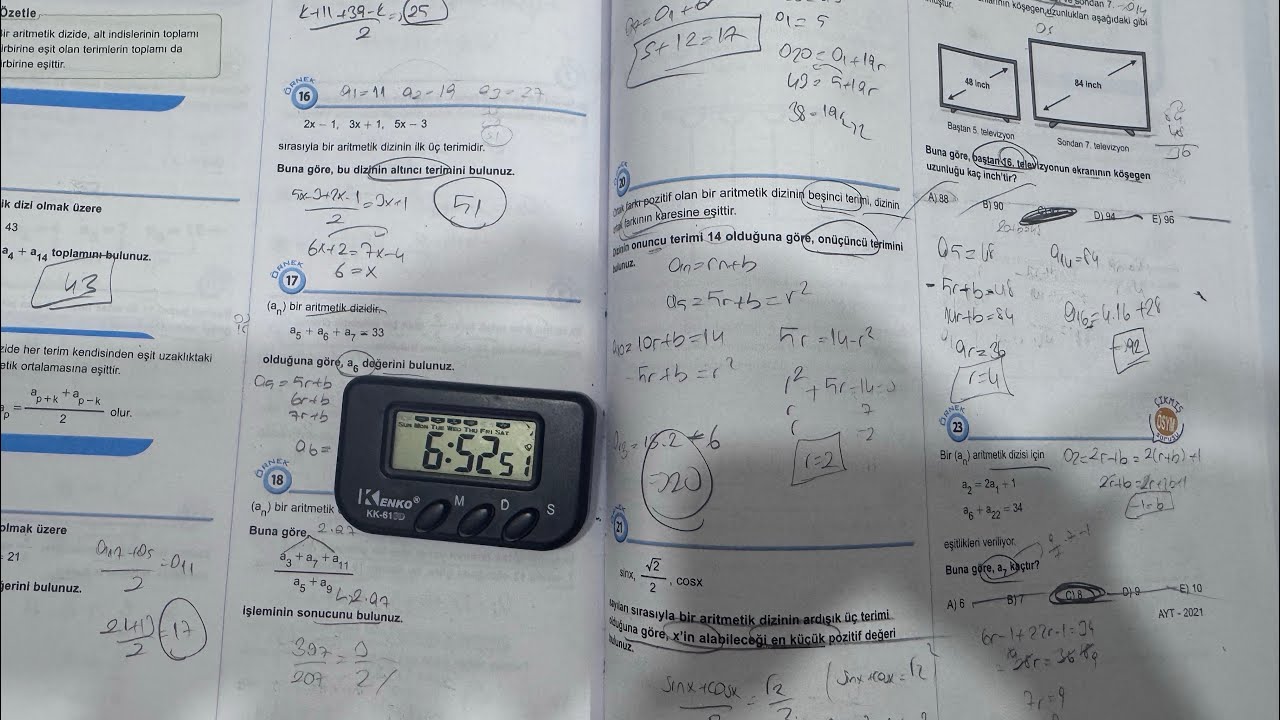 Özetle
ir aritmetik dizide, alt indislerinin toplamı
irbirine eşit olan terimlerin toplamı da
irbirine eşittir.
ik dizi olmak üzere
43
a4 + a14 toplamını bulunuz.
43
zide her terim kendisinden eşit uzaklıktaki
etik ortalamasına eşittir.
ap = (ap+k + ap-k)/2 olur.
olmak üzere
= 21
ğerini bulunuz.
= a11
= 17
k+11+39-k/2 = 25
ÖRNEK 16
a1=11 a2=19 a3=27
2x – 1, 3x + 1, 5x – 3
sırasıyla bir aritmetik dizinin ilk üç terimidir.
Buna göre, bu dizinin altıncı terimini bulunuz.
5x-3+2x-1/2 = 3x+1
51
6x+2=7x-4
6=x
ÖRNEK 17
(an) bir aritmetik dizidir.
a5 + a6 + a7 = 33
olduğuna göre, a6 değerini bulunuz.
a5=5r+b
6r+b
7r+b
a6=
SUN MON TUE WED THU FRI SAT
6:52 51
KENKO®
KK-613D
M D S
ÖRNEK 18
(an) bir aritmetik
Buna göre,
a3 + a7 + a11
a5 + a9
2.a7
işleminin sonucunu bulunuz.
3a7/2a7 = 3/2
5+12=17
a1=5
a20=a1+19r
43=5+19r
38=19r
20
Ortak farkı pozitif olan bir aritmetik dizinin beşinci terimi, dizinin
ortak farkının karesine eşittir.
Dizinin onuncu terimi 14 olduğuna göre, onüçüncü terimini
bulunuz.
an=rn+b
a5=5r+b=r²
a10=10r+b=14
5r=14-r²
-5r+b=r²
r²+5r-14=0
r 7
r -2
r=2
20
ÖRNEK 21
sinx, √2/2, cosx
sayıları sırasıyla bir aritmetik dizinin ardışık üç terimi
olduğuna göre, x'in alabileceği en küçük pozitif değeri
bulunuz.
sinx+cosx/2 = √2/2
sinx+cosx=√2
ve sondan 7.
köşegen uzunlukları aşağıdaki gibi
48 inch
84 inch
Baştan 5. televizyon
Sondan 7. televizyon
84
48
36
Buna göre, baştan 16. televizyonun ekranının köşegen
uzunluğu kaç inch'tir?
A) 88 B) 90 D) 94 E) 96
a5=48 a14=84
-5r+b=48
14r+b=84
a16=4.16+28
=92
9r=36
r=4
ÖRNEK 23
ÇIKMIŞ ÖSYM SORUSU
Bir (an) aritmetik dizisi için
a2=2r+b=2(r+b)+1
a2 = 2a1 + 1
2r+b=2r+2b+1
a6 + a22 = 34
-1=b
eşitlikleri veriliyor.
Buna göre, a7 kaçtır?
A) 6 B) 7 C) 8 D) 9 E) 10
AYT - 2021
6r-1+22r-1=34
7r=9